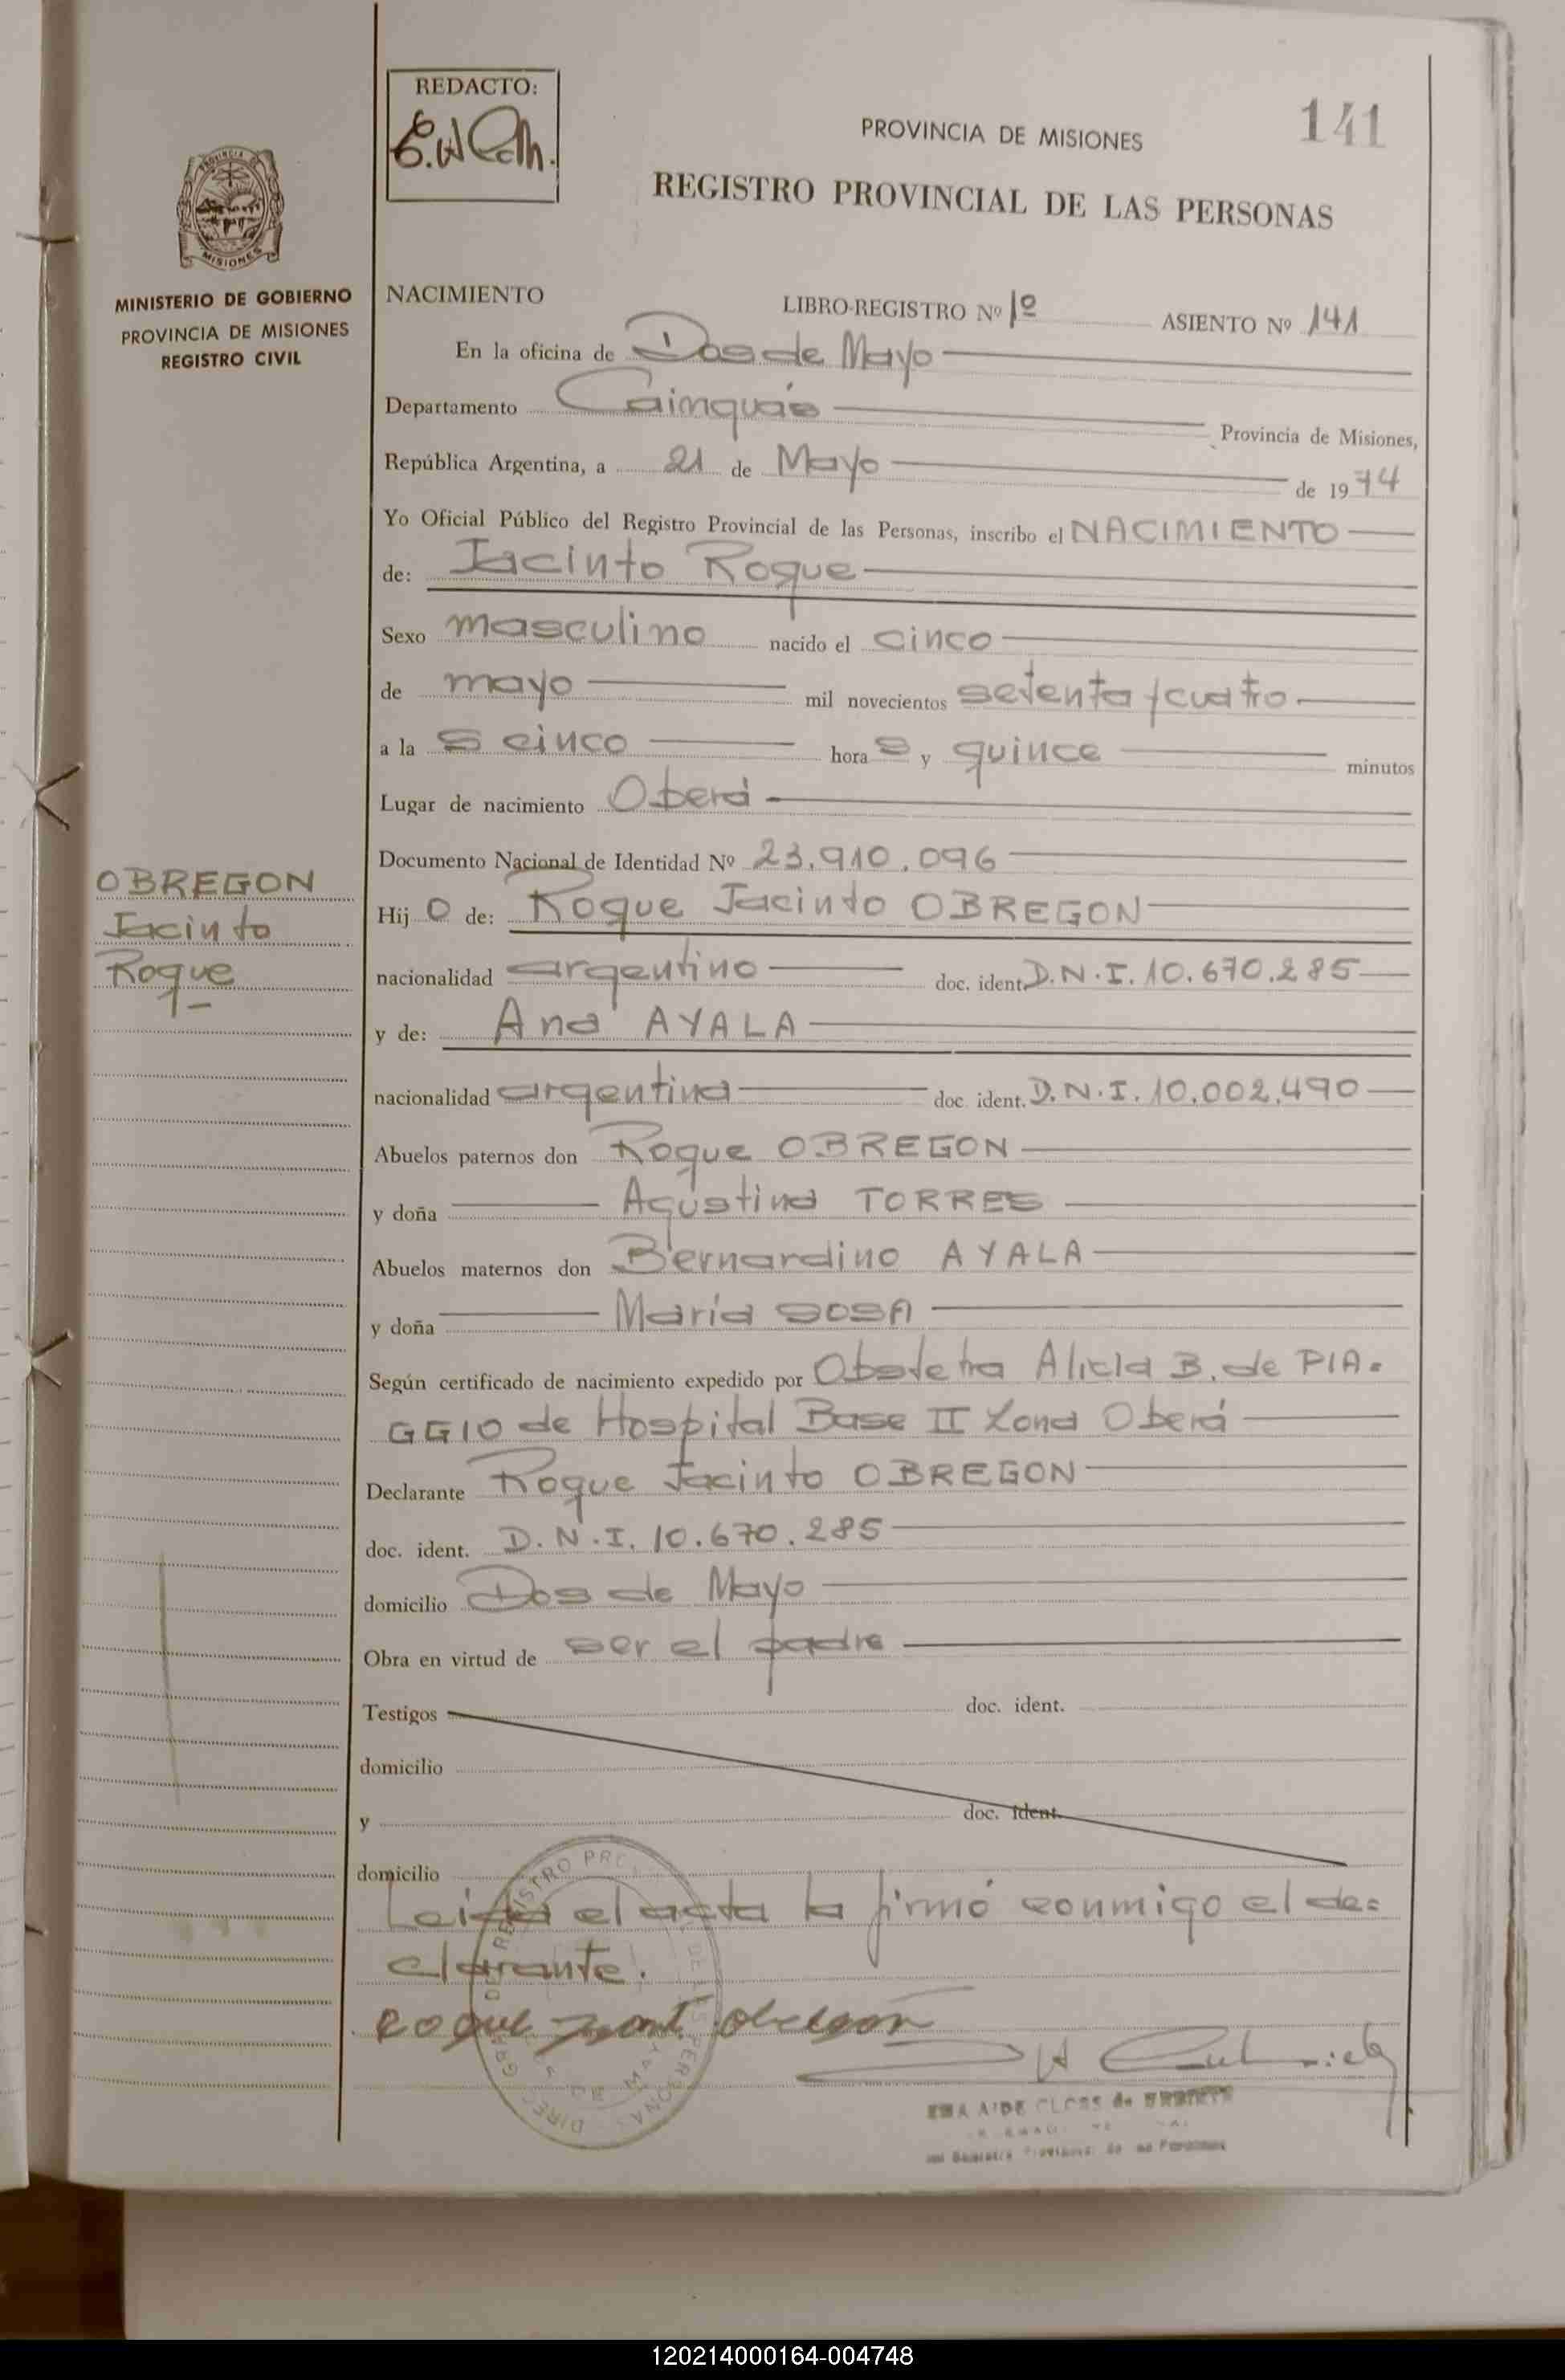 REDACTO:
PROVINCIA DE MISIONES
141
REGISTRO PROVINCIAL DE LAS PERSONAS
MISIONES
MINISTERIO DE GOBIERNO
PROVINCIA DE MISIONES
REGISTRO CIVIL
NACIMIENTO LIBRO-REGISTRO Nº 1º ASIENTO Nº 141
En la oficina de Dos de Mayo
Departamento Cainguás Provincia de Misiones,
República Argentina, a 21 de Mayo de 1974
Yo Oficial Público del Registro Provincial de las Personas, inscribo el NACIMIENTO
de: Jacinto Roque
Sexo masculino nacido el cinco
de mayo mil novecientos setenta y cuatro
a la s cinco hora s y quince minutos
Lugar de nacimiento Oberá
Documento Nacional de Identidad Nº 23.910.096
OBREGON
Jacinto
Roque
Hij o de: Roque Jacinto OBREGON
nacionalidad argentino doc. ident. D.N.I. 10.670.285
y de: Ana AYALA
nacionalidad argentina doc. ident. D.N.I. 10.002.490
Abuelos paternos don Roque OBREGON
y doña Agustina TORRES
Abuelos maternos don Bernardino AYALA
y doña María SOSA
Según certificado de nacimiento expedido por Obstetra Alicia B. de PIA=
GGIO de Hospital Base II Zona Oberá
Declarante Roque Jacinto OBREGON
doc. ident. D.N.I. 10.670.285
domicilio Dos de Mayo
Obra en virtud de ser el padre
Testigos doc. ident.
domicilio
y doc. ident.
domicilio
Leida el acta la firmó conmigo el de=
clarante.
Roque obregon
120214000164-004748